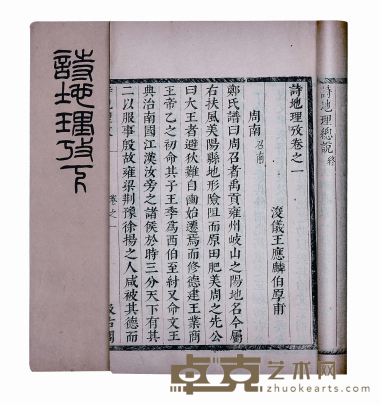 詩地理總說 終
詩地理攷卷之一
浚儀王應麟伯厚甫
周南 召南
鄭氏譜曰周召者禹貢雍州岐山之陽地名今屬
右扶風美陽縣地形險阻而原田肥美周之先公
曰大王者避狄難自豳始遷焉而修德建王業商
王帝乙之初命其子王季為西伯至紂又命文王
典治南國江漢汝旁之諸侯於時三分天下有其
二以服事殷故雍梁荆豫徐揚之人咸被其德而
卷之一
汲古閣
詩地理攷下
卓克艺术网
zhuokearts.com